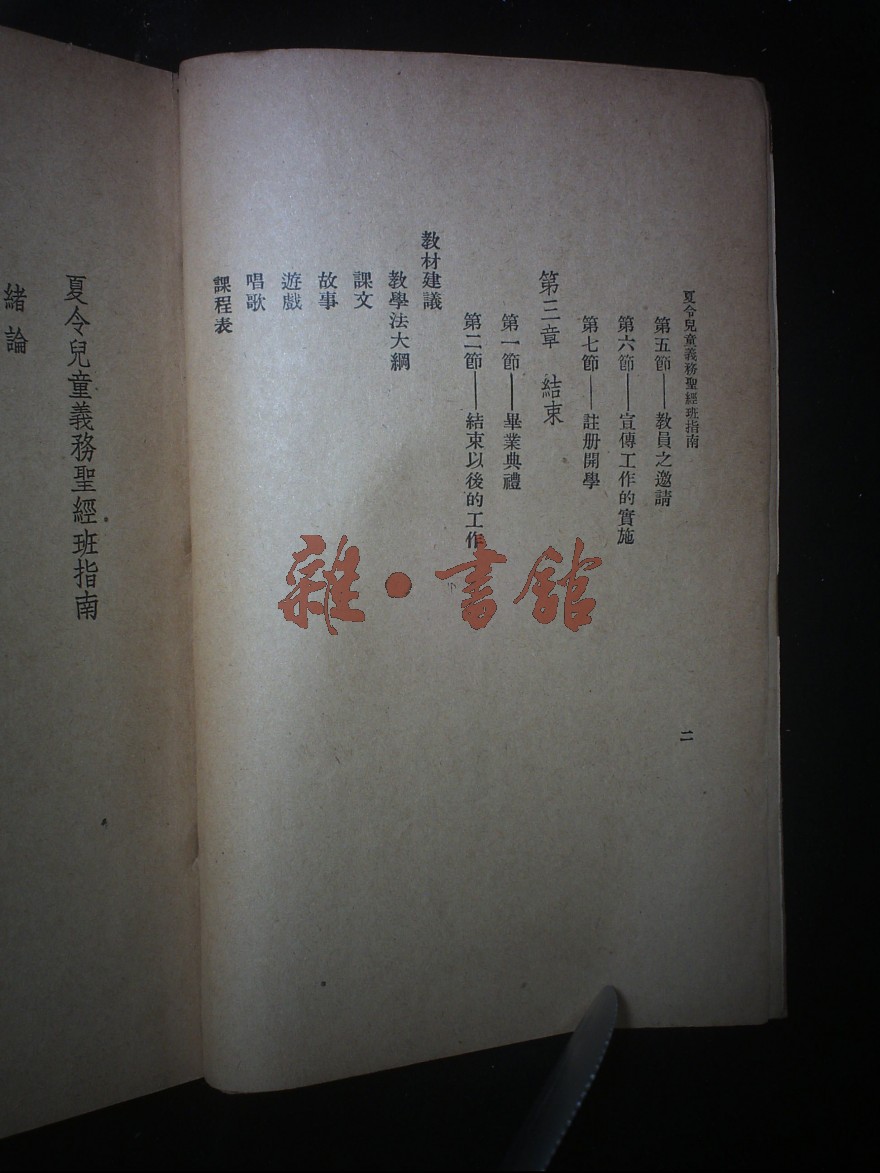 夏令兒童義務聖經班指南
第五節——教員之邀請
第六節——宣傳工作的實施
第七節——註册開學
第三章 結束
第一節——畢業典禮
第二節——結束以後的工作
教材建議
教學法大綱
課文
故事
遊戲
唱歌
課程表
二
夏令兒童義務聖經班指南
緒論
雜·書館